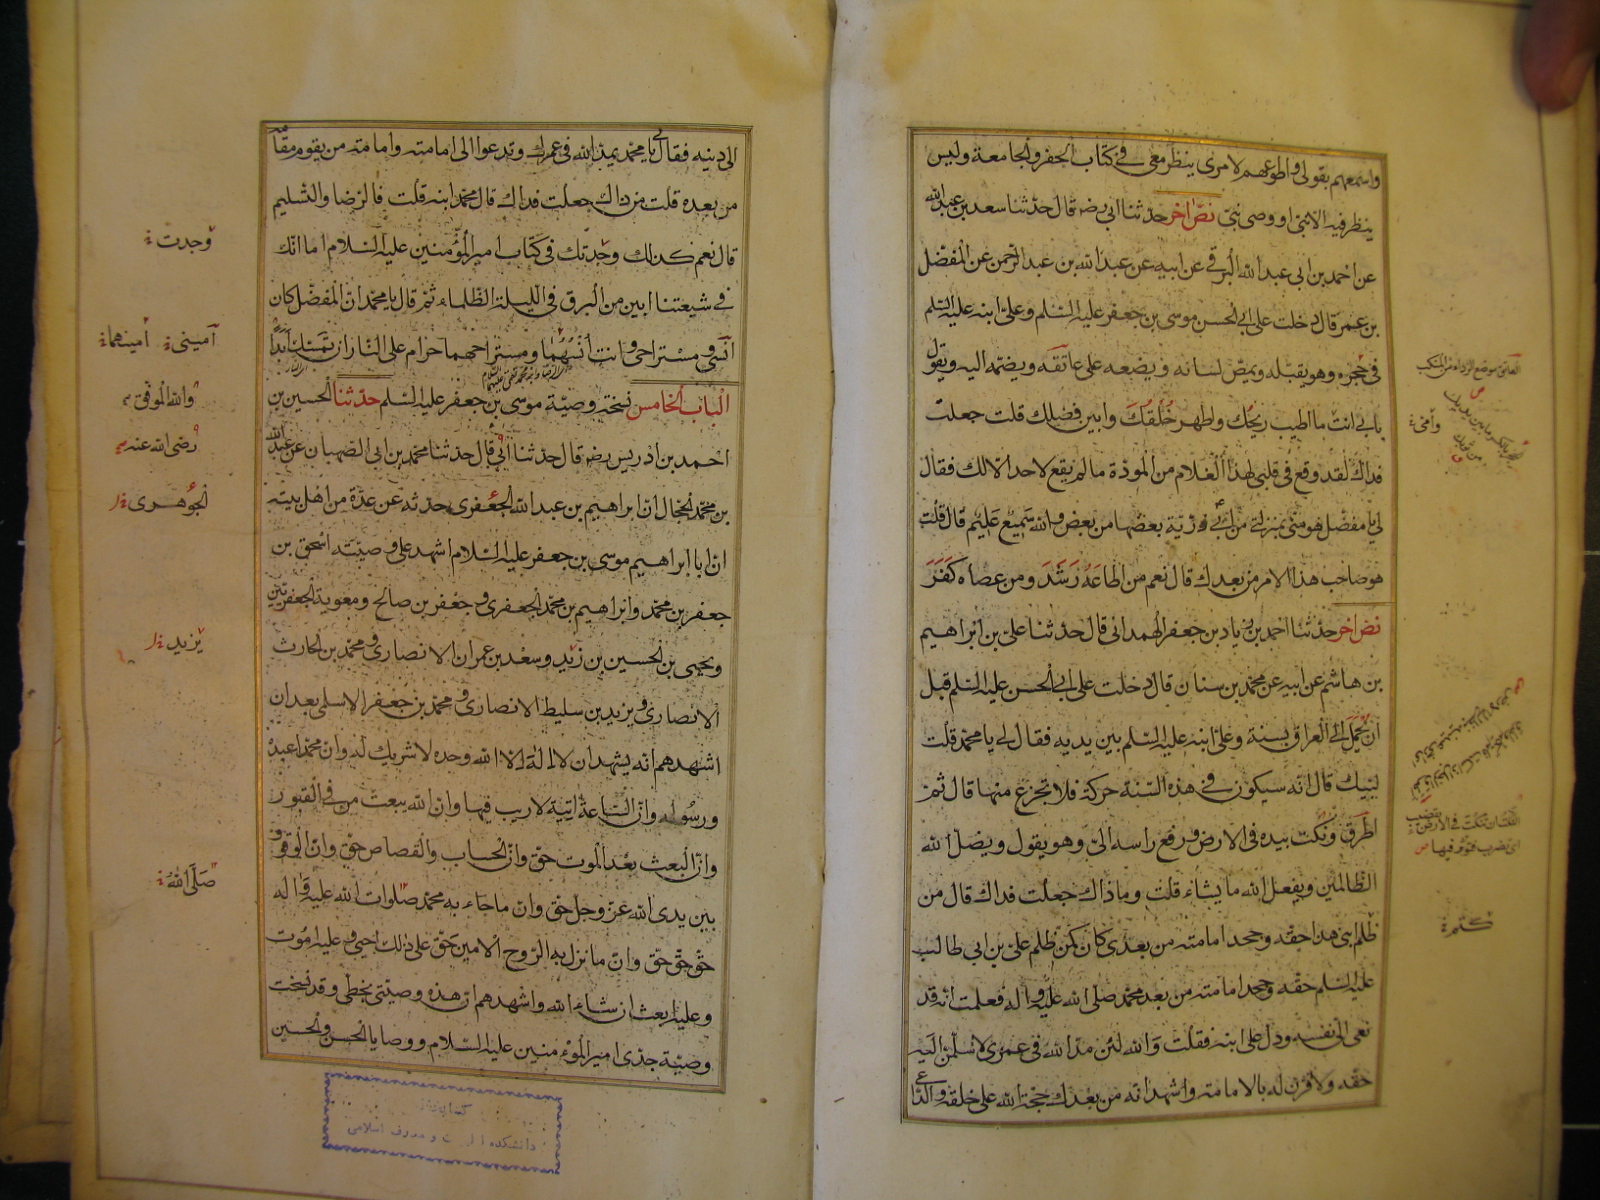 واسمعهم بقولى واطوعهم لامرى ينظر معى فى كتاب الجفر والجامعة وليس
ينظر فيه الا نبى او وصى نبى نص اخر حدثنا ابى رضه قال حدثنا سعد بن عبد الله
عن احمد بن ابى عبد الله البرقى عن ابيه عن عبد الله بن عبد الرحمن عن المفضل
بن عمر قال دخلت على ابى الحسن موسى بن جعفر عليه السلم وعلى ابنه عليه السلم
فى حجره وهو يقبله ويمص لسانه ويضعه على عاتقه ويضمه اليه ويقول
بابى انت ما اطيب ريحك واطهر خلقك وابين فضلك قلت جعلت
فداك لقد وقع فى قلبى لهذا الغلام من المودة ما لم يقع لاحد الا لك فقال
لى يا مفضل هو منى بمنزلتى من ابى ذرية بعضها من بعض والله سميع عليم قال قلت
هو صاحب هذا الامر من بعدك قال نعم من اطاعه رشد ومن عصاه كفر
نص اخر حدثنا احمد بن زياد بن جعفر الهمدانى قال حدثنا على بن ابراهيم
بن هاشم عن ابيه عن محمد بن سنان قال دخلت على ابى الحسن عليه السلم قبل
ان يحمل الى العراق بسنة وعلى ابنه عليه السلم بين يديه فقال لى يا محمد قلت
لبيك قال انه سيكون فى هذه السنة حركة فلا تجزع منها قال ثم
اطرق ونكت بيده فى الارض ورفع راسه الى وهو يقول ويضل الله
الظالمين ويفعل الله ما يشاء قلت وما ذاك جعلت فداك قال من
ظلم ابنى هذا حقه وجحد امامته من بعدى كان كمن ظلم على بن ابى طالب
عليه السلم حقه وجحد امامته من بعد محمد صلى الله عليه واله فعلمت انه قد
نعى الى نفسه ودل على ابنه فقلت والله لئن مد الله فى عمرى لاسلمن اليه
حقه ولاقرن له بالامامة واشهد انه من بعدك حجة الله على خلقه والداعى
العاتق موضع الرداء من المنكب
وامى
اى يضرب فتؤثر فيها
الى دينه فقال لى يا محمد يمد الله فى عمرك وتدعوا الى امامته وامامة من يقوم مقامه
من بعده قلت من ذاك جعلت فداك قال محمد ابنه قلت فالرضا والتسليم
قال نعم كذلك وجدتك فى كتاب امير المؤمنين عليه السلام اما انك
فى شيعتنا ابين من البرق فى الليلة الظلماء ثم قال يا محمد ان المفضل كان
انسى ومستراحى وانت انسهما ومستراحهما حرام على النار ان تمسك ابدا
الباب الخامس نسخة وصية موسى بن جعفر عليه السلم حدثنا الحسين بن
احمد بن ادريس رضه قال حدثنا ابى قال حدثنا محمد بن ابى الصهبان عن عبد الله
بن محمد الحجال ان ابراهيم بن عبد الله الجعفرى حدثه عن عدة من اهل بيته
ان ابا ابراهيم موسى بن جعفر عليه السلام اشهد على وصيته اسحق بن
جعفر بن محمد وابراهيم بن محمد الجعفرى وجعفر بن صالح ومعوية الجعفريين
ويحيى بن الحسين بن زيد وسعد بن عمران الانصارى ومحمد بن الحارث
الانصارى ويزيد بن سليط الانصارى ومحمد بن جعفر الاسلمى بعد ان
اشهدهم انه يشهد ان لا اله الا الله وحده لا شريك له وان محمدا عبده
ورسوله وان الساعة اتية لا ريب فيها وان الله يبعث من فى القبور
وان البعث بعد الموت حق وان الحساب والقصاص حق وان الوقوف
بين يدى الله عز وجل حق وان ما جاء به محمد صلوات الله عليه واله
حق حق حق وان ما نزل به الروح الامين حق على ذلك احيى وعليه اموت
وعليه ابعث ان شاء الله واشهدهم ان هذه وصيتى بخطى وقد نسخت
وصية جدى امير المؤمنين عليه السلام ووصايا الحسن والحسين
وجدت
آمينى امينهما
والله الموفق
رضى الله عنه
الجوهرى
يزيد
صلى الله
دانشكده و معارف اسلامى